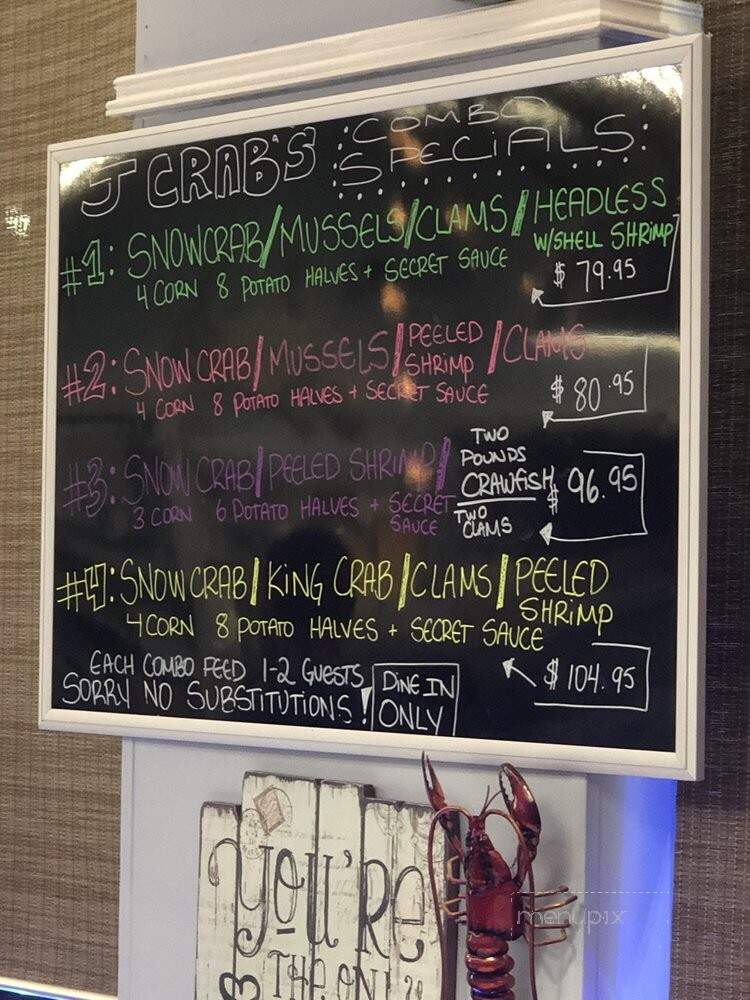 J CRAB'S COMBO
SPECIALS
#1: SNOWCRAB/MUSSELS/CLAMS/HEADLESS
W/SHELL SHRIMP
4 CORN 8 POTATO HALVES + SECRET SAUCE
$ 79.95
#2: SNOW CRAB/MUSSELS/PEELED
SHRIMP /CLAMS
4 CORN 8 POTATO HALVES + SECRET SAUCE
$ 80.95
#3: SNOW CRAB/PEELED SHRIMP/
TWO
POUNDS
CRAWFISH
TWO
CLAMS
3 CORN 6 POTATO HALVES + SECRET
SAUCE
$ 96.95
#4: SNOWCRAB/KING CRAB/CLAMS/PEELED
SHRIMP
4 CORN 8 POTATO HALVES + SECRET SAUCE
$ 104.95
EACH COMBO FEED 1-2 GUESTS
SORRY NO SUBSTITUTIONS!
DINE IN
ONLY
YOU'RE
THE ONLY
menupix